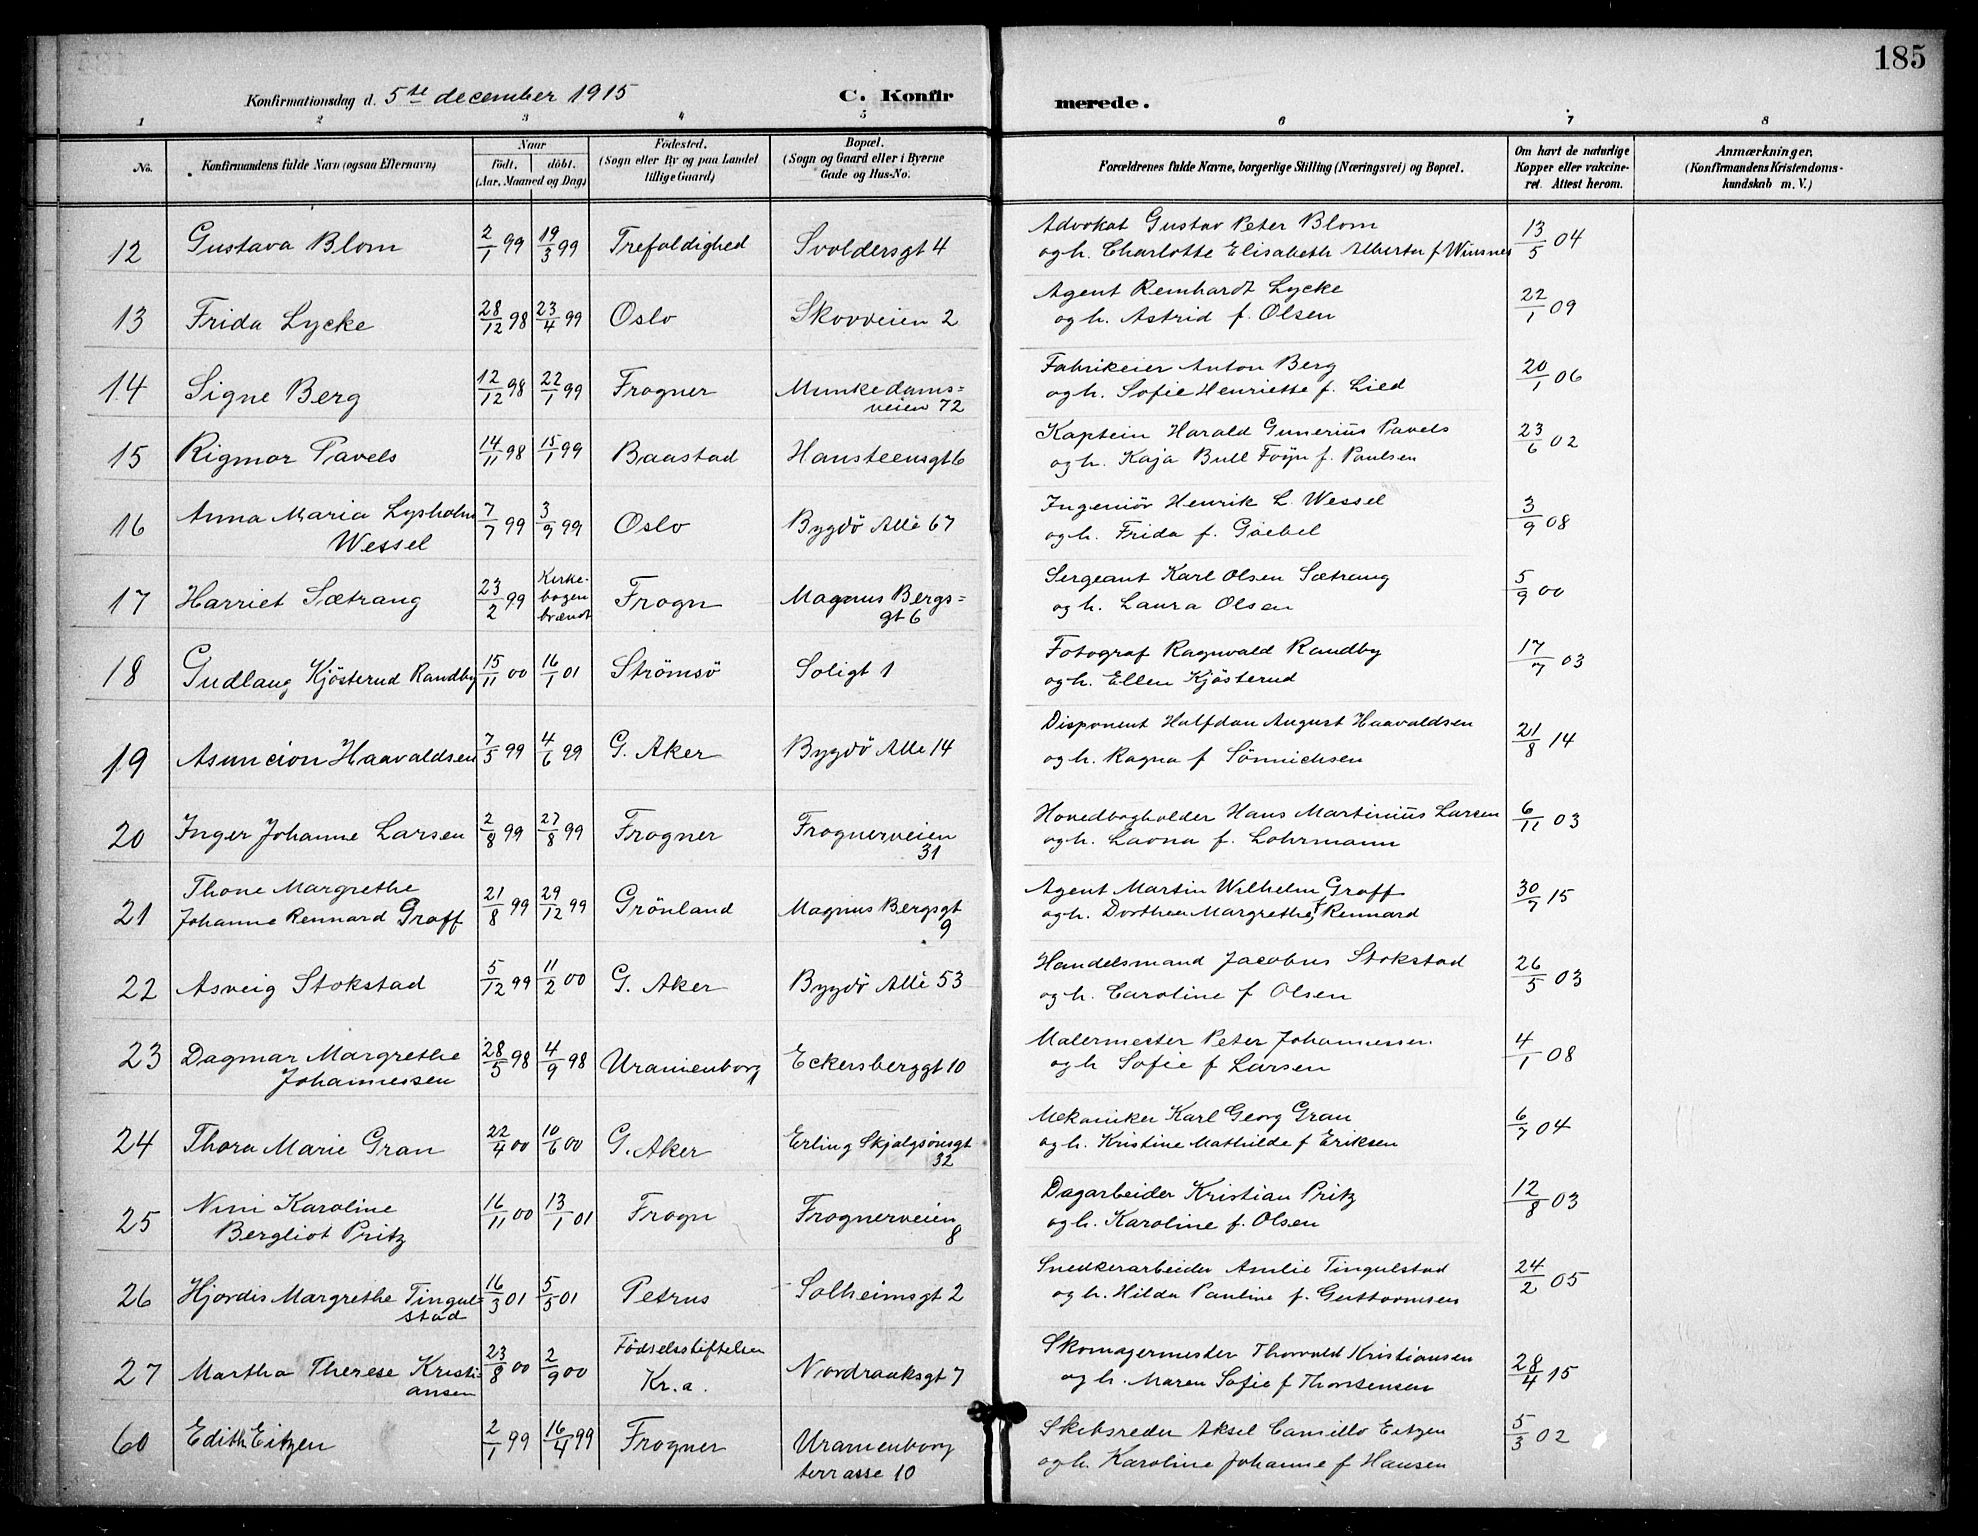 185
Konfirmationsdag d. 5te december 1915 C. Konfirmerede.
1 2 3 4 5 6 7 8
No. Konfirmandens fulde Navn (ogsaa Efternavn) Naar født. døbt. (Aar, Maaned og Dag) Fødested. (Sogn eller By og paa Landet tillige Gaard) Bopæl. (Sogn og Gaard eller i Byerne Gade og Hus-No. Forældrenes fulde Navne, borgerlige Stilling (Næringsvei) og Bopæl. Om havt de naturlige Kopper eller vakcineret. Attest herom. Anmærkninger. (Konfirmandens Kristendomskundskab m. V.)
12 Gustava Blom 2/1 99 19/3 99 Trefoldighed Svoldersgt 4 Advokat Gustav Peter Blom 13/5 04
og h. Charlotte Elisabeth Alberta f Winsnes
13 Frida Lycke 28/12 98 23/4 99 Oslo Skovveien 2 Agent Reinhardt Lycke 22/1 09
og h. Astrid f. Olsen
14 Signe Berg 12/12 98 22/1 99 Frogner Munkedams= Fabrikeier Anton Berg 20/1 06
veien 72 og h. Sofie Henriette f. Lied
15 Rigmor Pavels 14/11 98 15/1 99 Baastad Hansteensgt 6 Kaptein Harald Gunerius Pavels 23/6 02
og h. Kaja Bull Føyn f. Paulsen
16 Anna Maria Lysholm 7/7 99 3/9 99 Oslo Bygdö Allé 67 Ingeniør Henrik L. Wessel 3/9 08
Wessel og h. Frida f. Goebel
17 Harriet Sætrang 23/2 99 Kirkebogen brændt Frogn Magnus Bergs= Sergeant Karl Olsen Sætrang 5/9 00
gt 6 og h. Laura Olsen
18 Gudlaug Kjösterud Randby 15/11 00 16/1 01 Strömsö Soligt 1 Fotograf Ragnvald Randby 17/7 03
og h. Ellen Kjösterud
19 Asuncion Haavaldsen 7/5 99 4/6 99 G. Aker Bygdö Allé 14 Disponent Halfdan August Haavaldsen 21/8 14
og h. Ragna f Sönnichsen
20 Inger Johanne Larsen 2/8 99 27/8 99 Frogner Frognerveien Hovedbogholder Hans Martinius Larsen 6/11 03
31 og h. Laona f. Lohrmann
21 Thone Margrethe 21/8 99 29/12 99 Grönland Magnus Bergsgt Agent Martin Wilhelm Groff 30/7 15
Johanne Rennard Groff 9 og h. Dorthea Margrethe f Rennard
22 Asveig Stokstad 5/12 99 11/2 00 G. Aker Bygdö Allé 53 Handelsmand Jacobus Stokstad 26/5 03
og h. Caroline f Olsen
23 Dagmar Margrethe 28/5 98 4/9 98 Uranienborg Eckersberggt 10 Malermester Peter Johannessen 4/1 08
Johannessen og h Sofie f Larsen
24 Thora Marie Gran 22/4 00 10/6 00 G. Aker Erling Skjalgsönsgt Mekaniker Karl Georg Gran 6/7 04
32 og h. Kristine Mathilde f Eriksen
25 Nini Karoline 16/11 00 13/1 01 Frogn Frognerveien Dagarbeider Kristian Pritz 12/8 03
Bergliot Pritz 8 og h. Karoline f. Olsen
26 Hjordis Margrethe Tingul= 16/3 01 5/5 01 Petrus Solheimsgt 2 Snedkerarbeider Amlie Tingulstad 24/2 05
stad og h. Hilda Pauline f. Guttormsen
27 Martha Therese Kristi= 23/8 00 2/9 00 Födselsstiftelsen Nordraaksgt 7 Skomagermester Thorvald Kristiansen 28/4 15
ansen Kr.a. og h. Maren Sofie f Thorstensen
60 Edith Eitzen 2/1 99 16/4 99 Frogner Uranienborg Skibsreder Aksel Camillo Eitzen 5/3 02
terrasse 10 og h. Karoline Johanne f Hansen